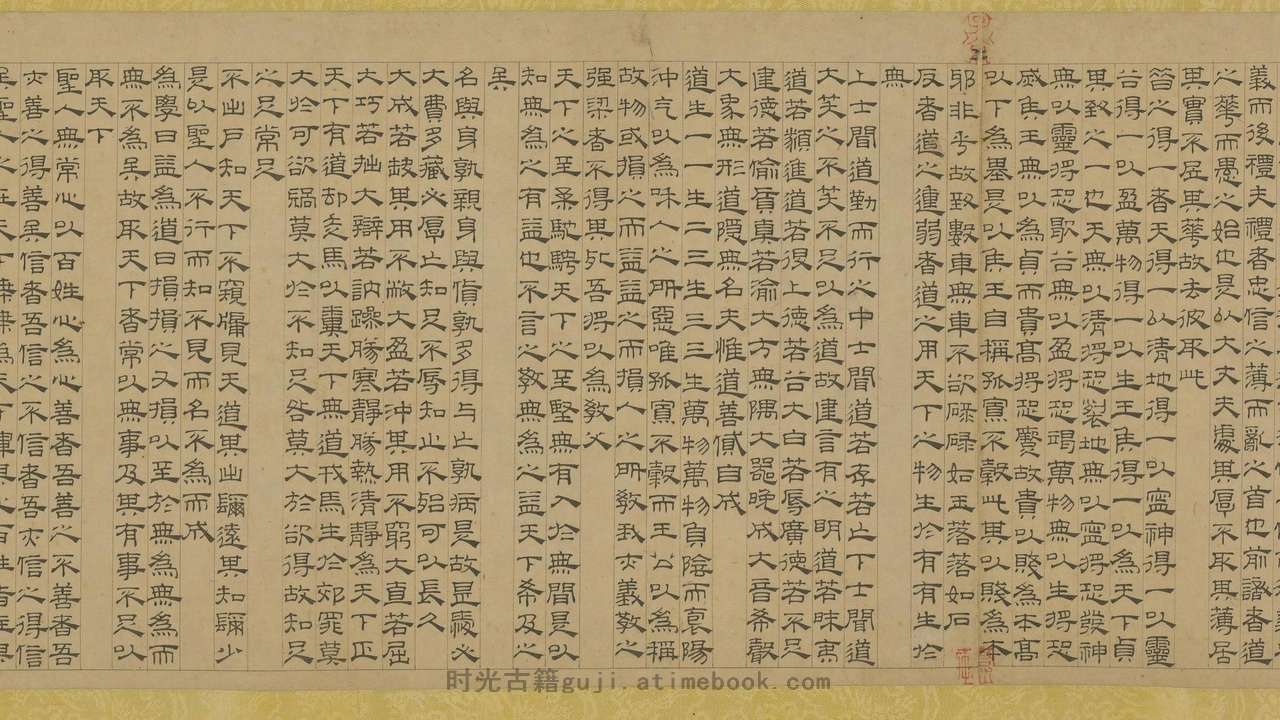 義而後禮夫禮者忠信之薄而亂之首也前識者道
之華而愚之始也是以大丈夫處其厚不取其薄居
其實不居其華故去彼取此
昔之得一者天得一以清地得一以寧神得一以靈
谷得一以盈萬物得一以生王侯得一以為天下貞
其致之一也天無以清將恐裂地無以寧將恐發神
無以靈將恐歇谷無以盈將恐竭萬物無以生將恐
滅侯王無以為貞而貴高將恐蹷故貴以賤為本高
以下為基是以侯王自稱孤寡不穀此其以賤為本
邪非乎故致數車無車不欲碌碌如玉落落如石
反者道之動弱者道之用天下之物生於有有生於
無
上士聞道勤而行之中士聞道若存若亡下士聞道
大笑之不笑不足以為道故建言有之明道若昧夷
道若類進道若退上德若谷大白若辱廣德若不足
建德若偷質真若渝大方無隅大器晚成大音希聲
大象無形道隱無名夫惟道善貸且成
道生一一生二二生三三生萬物萬物負陰而裒陽
沖气以為和人之所惡唯孤寡不穀而王公以為稱
故物或損之而益益之而損人之所教我亦義教之
强梁者不得其死吾將以為教父
天下之至柔馳騁天下之至堅無有入於無間是以
知無為之有益也不言之教無為之益天下希及之
矣
名與身孰親身與貨孰多得与亡孰病是故甚愛必
大費多藏必厚亡知足不辱知止不殆可以長久
大成若缺其用不敝大盈若沖其用不窮大直若屈
大巧若拙大辯若訥躁勝寒靜勝熱清靜為天下正
天下有道却走馬以糞天下無道戎馬生於郊罪莫
大於可欲禍莫大於不知足咎莫大於欲得故知足
之足常足
不出戶知天下不窺牖見天道其出彌遠其知彌少
是以聖人不行而知不見而名不為而成
為學日益為道日損損之又損以至於無為無為而
無不為矣故取天下者常以無事及其有事不足以
取天下
聖人無常心以百姓心為心善者吾善之不善者吾
亦善之得善矣信者吾信之不信者吾亦信之得信
时光古籍guji.atimebook.com